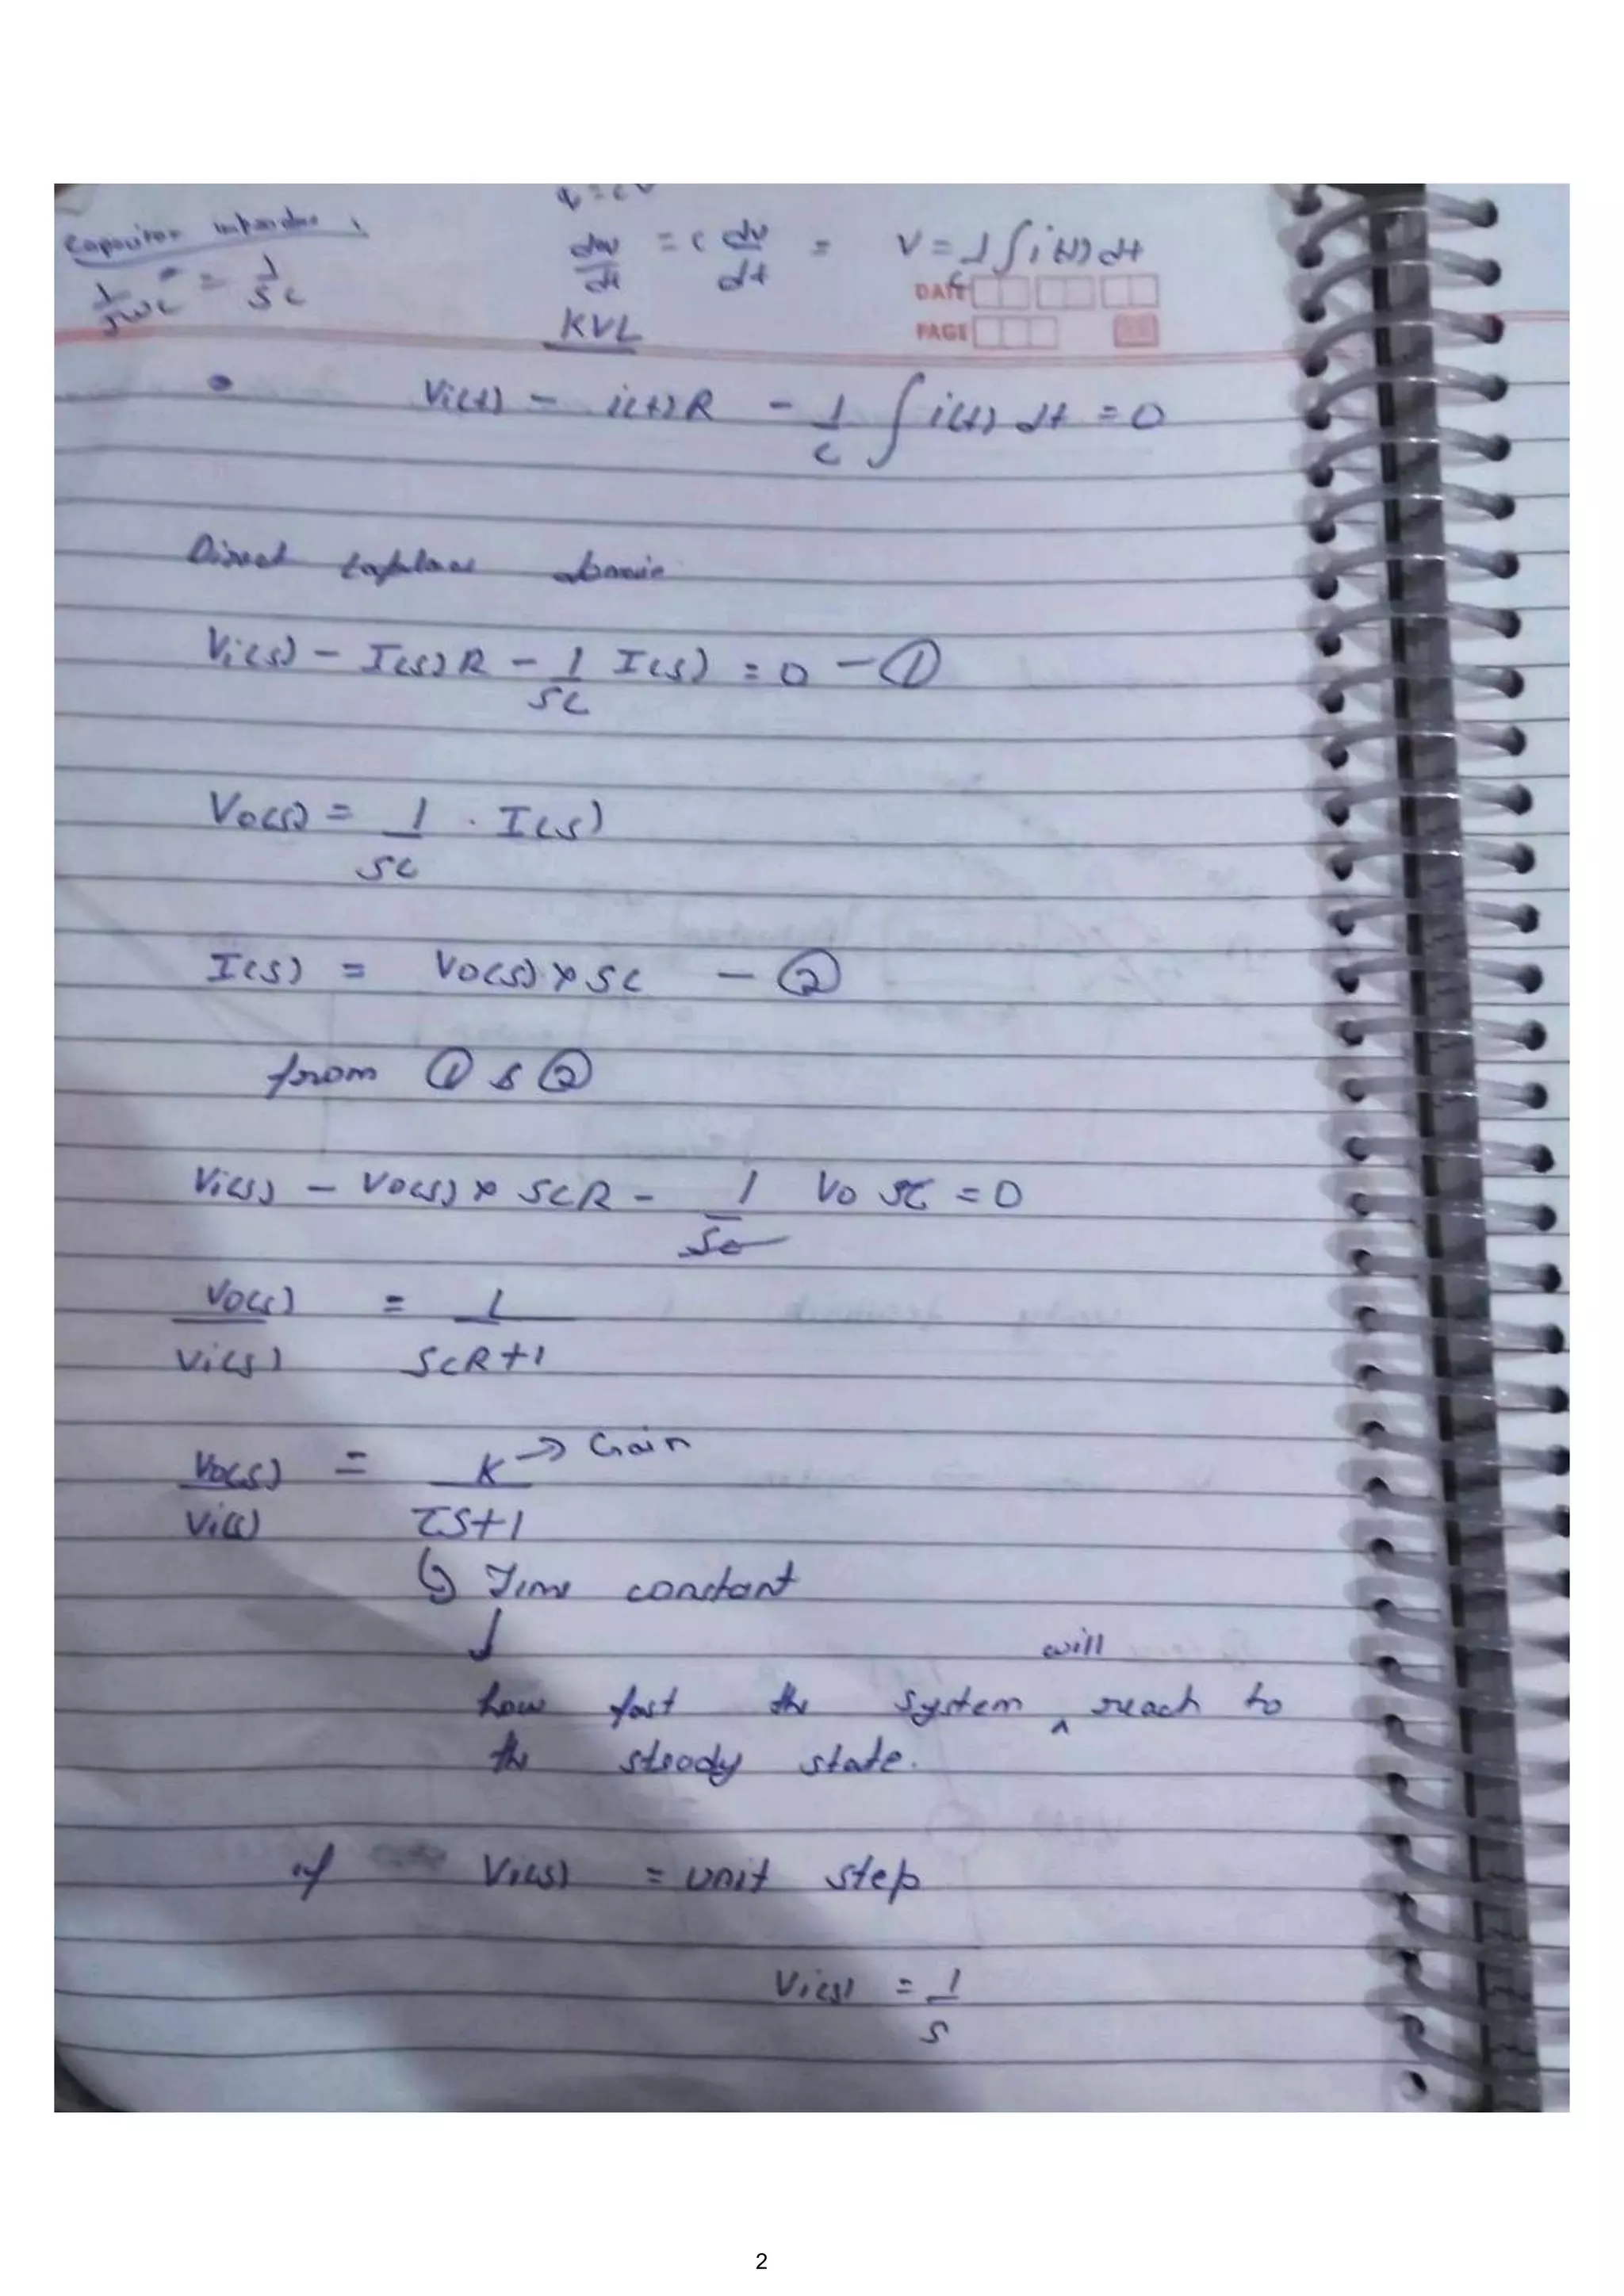 q = cv
Capacitor
1/jωc = 1/sc
dq/dt = c dv/dt = V = 1/c ∫ i(t) dt
DATE
PAGE
KVL
Vi(t) - i(t)R - 1/c ∫ i(t) dt = 0
Direct Laplace domain
Vi(s) - I(s)R - 1/sc I(s) = 0 - ①
Vo(s) = 1/sc . I(s)
I(s) = Vo(s) × sc - ②
from ① & ②
Vi(s) - Vo(s) × scR - 1/sc Vo sc = 0
Vo(s)/Vi(s) = 1/scR+1
Vo(s)/Vi(s) = K/τs+1 → Gain
↳ Time constant
↓
how fast the system will reach to
the steady state.
if Vi(s) = unit step
Vi(s) = 1/s
2